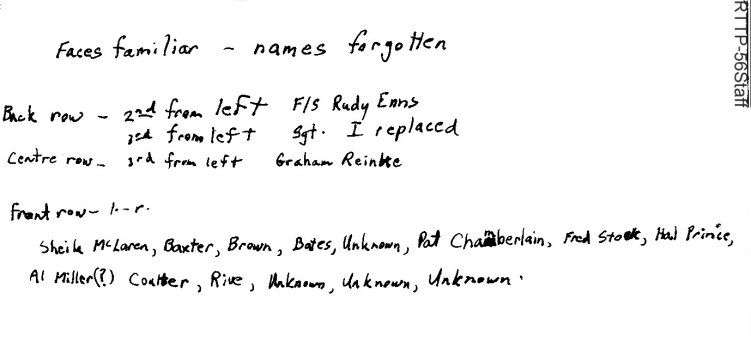 RTTP-56Staff
Faces familiar - names forgotten
Back row - 2nd from left F/S Rudy Enns
3rd from left Sgt. I replaced
Centre row - 3rd from left Graham Reinke
Front row - l.-r.
Sheila McLaren, Baxter, Brown, Bates, Unknown, Pat Chamberlain, Fred Stock, Hal Prince,
Al Miller(?) Coulter, Rive, Unknown, Unknown, Unknown.